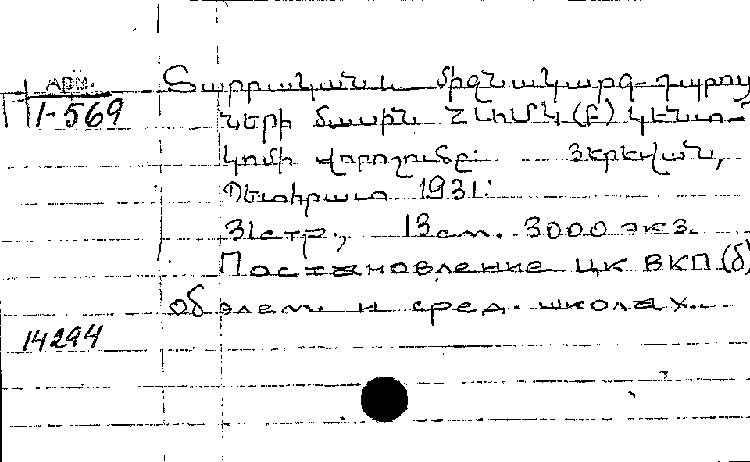 АРМ.
1-569
Տարրական և միջնակարգ դպրոց
ների մասին ՀԱՄԿ(բ) Կենտ-
կոմի վորոշումը: Յերևան,
Պետհրատ 1931:
31стр., 13см. 3000 экз.
Постановление ЦК ВКП(б)
об элем. и сред. школах.
14294